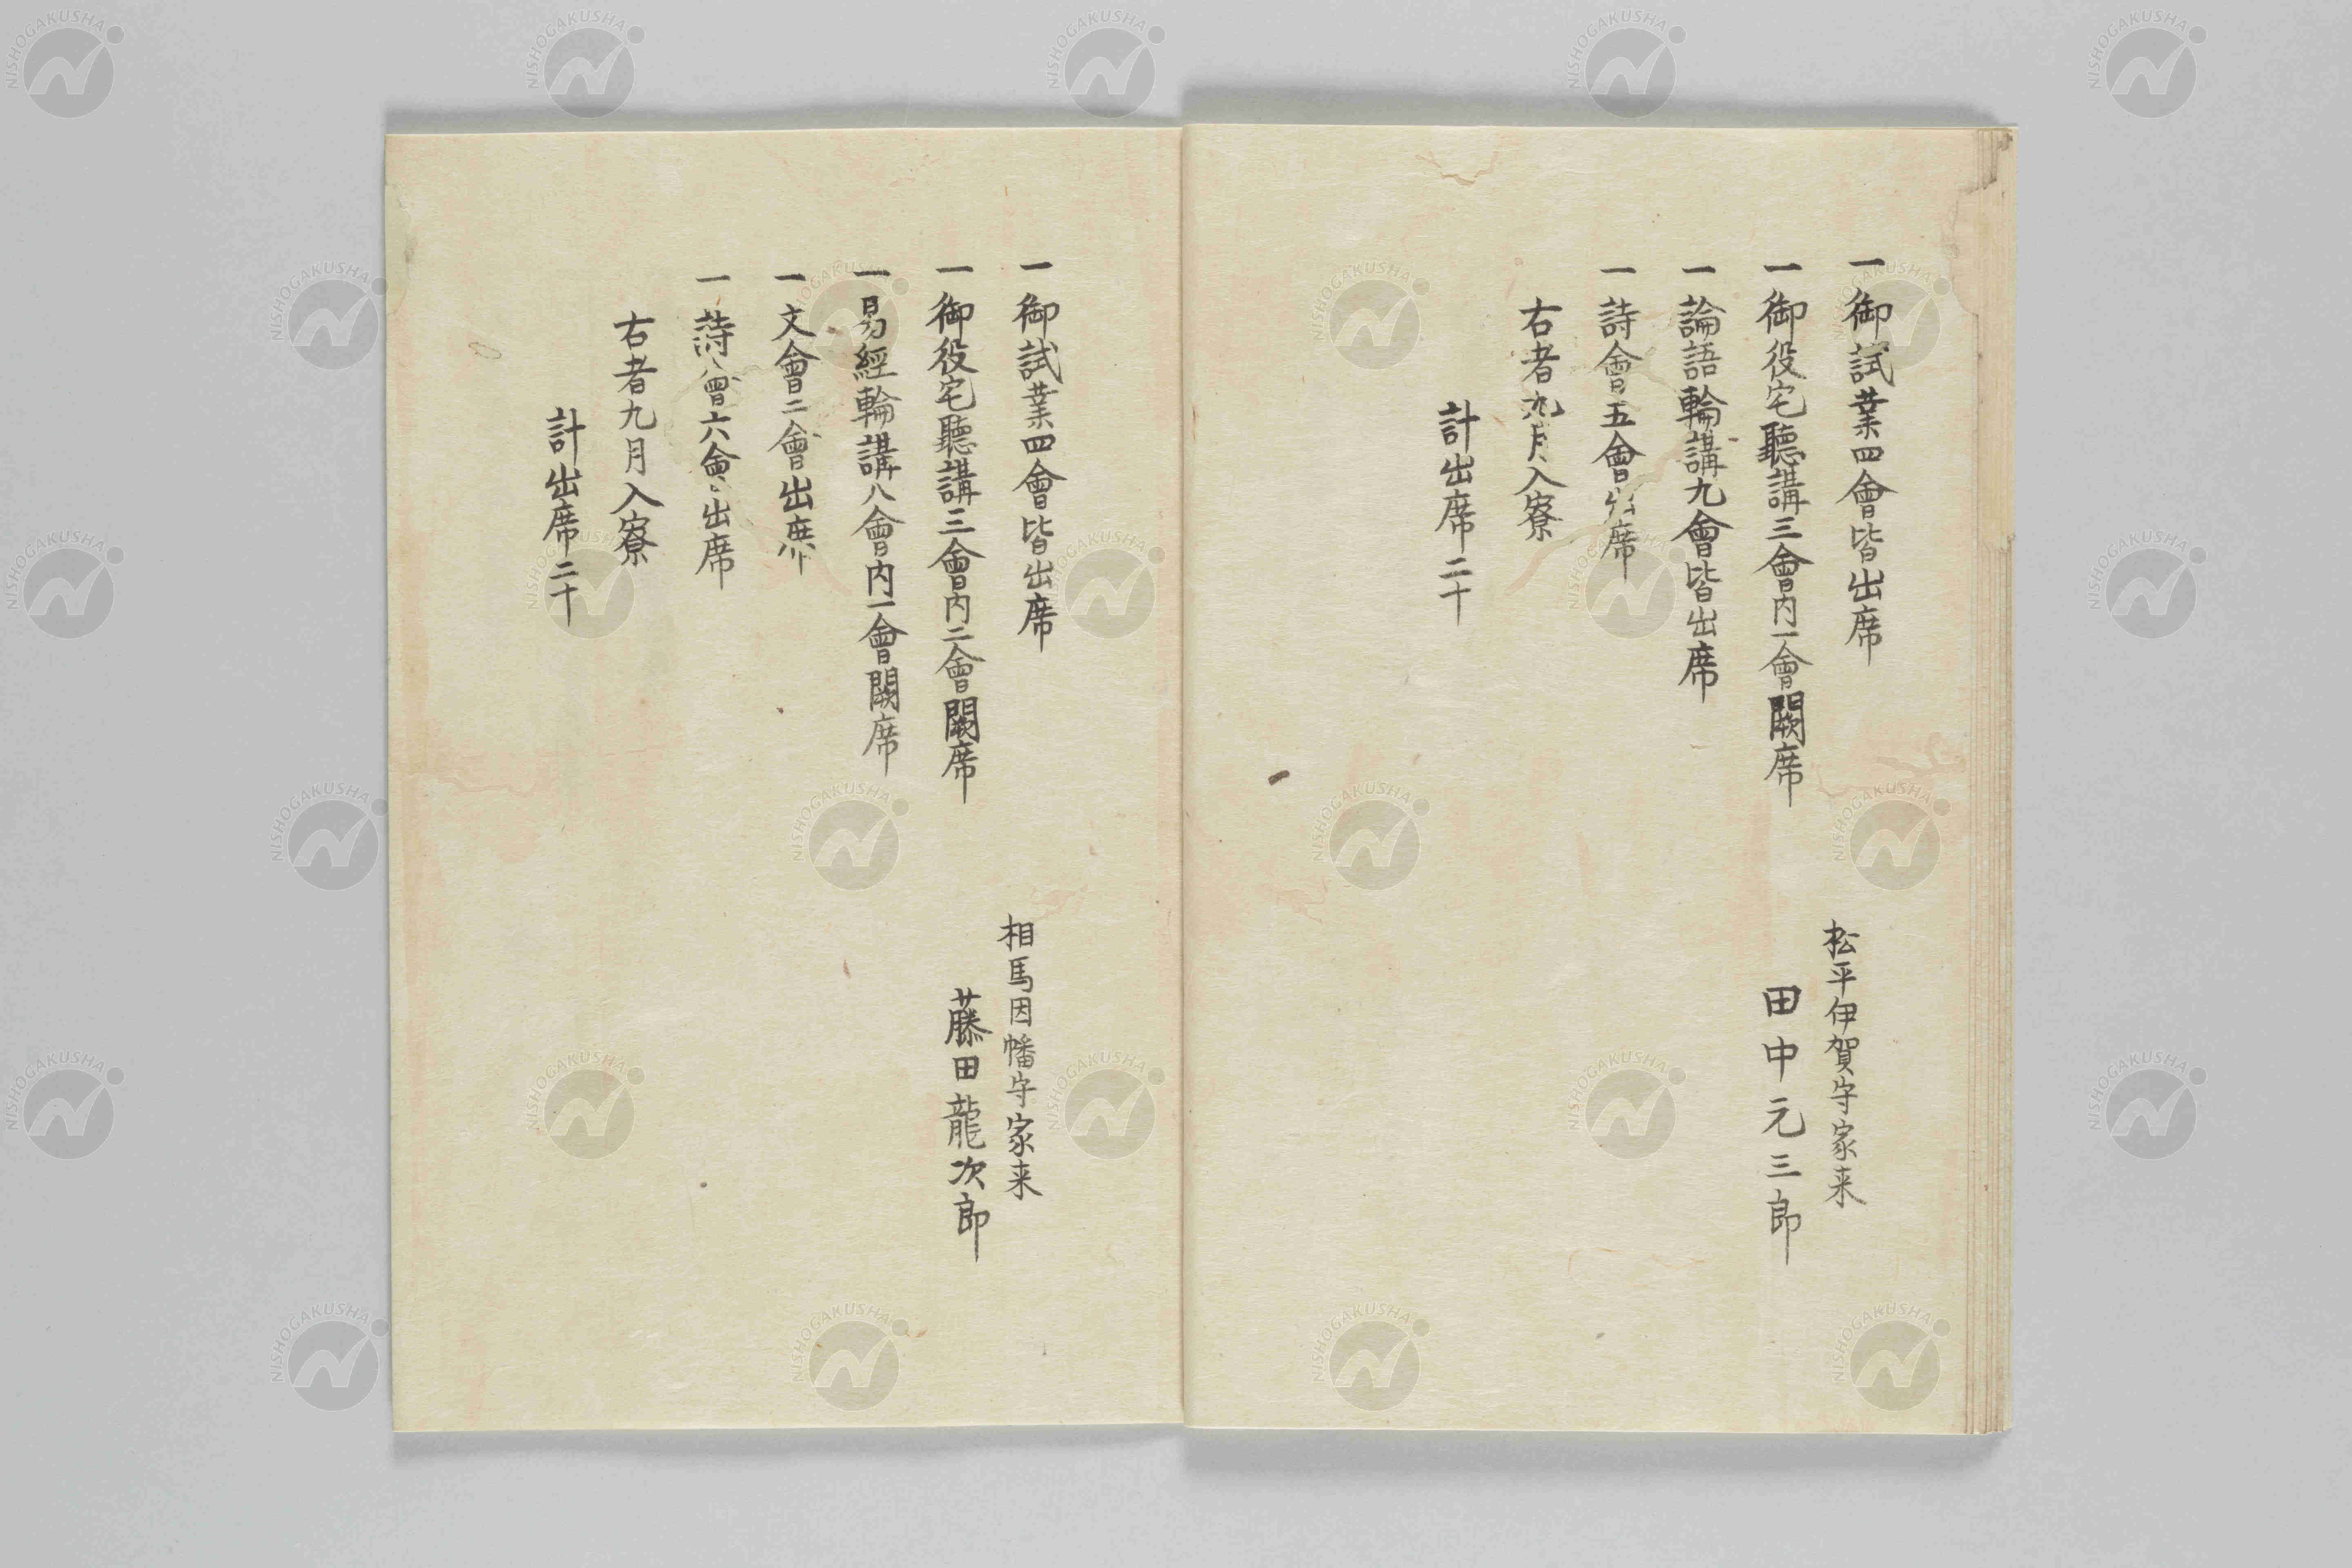 一御試業四會皆出席
松平伊賀守家来
一御役宅聽講三會内一會闕席
田中元三郎
一論語輪講九會皆出席
一詩會五會出席
右者九月入寮
計出席二十
一御試業四會皆出席
相馬因幡守家来
一御役宅聽講三會内二會闕席
藤田龍次郎
一易經輪講八會内一會闕席
一文會二會出席
一詩會六會出席
右者九月入寮
計出席二十
NISHOGAKUSHA